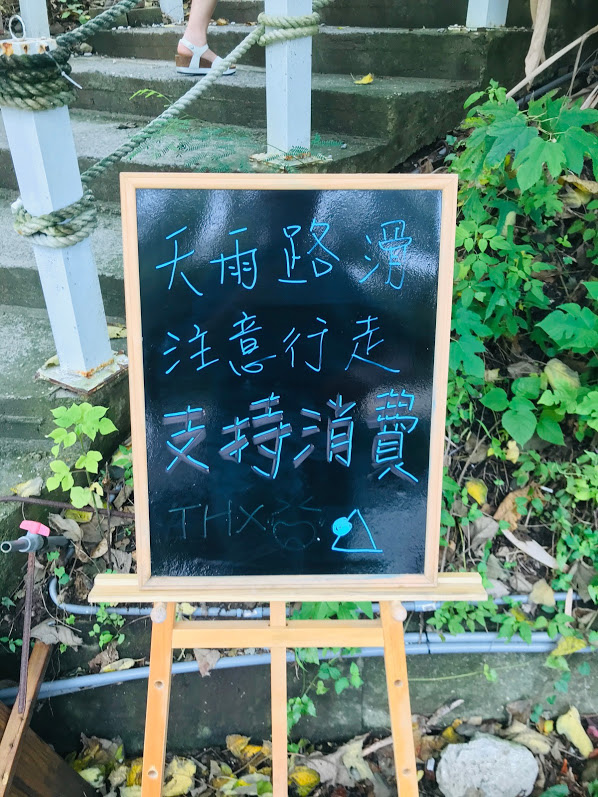 天雨路滑
注意行走
支持消費
THX